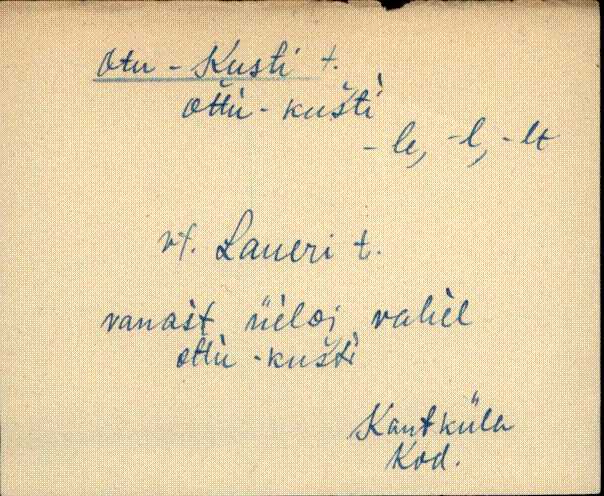 Otu-Kusti t.
ottu-kušti
-le, -l, -lt
vt. Laueri t.
vanast üeloi vahel
ottu-kušti
Kantküla
Kod.